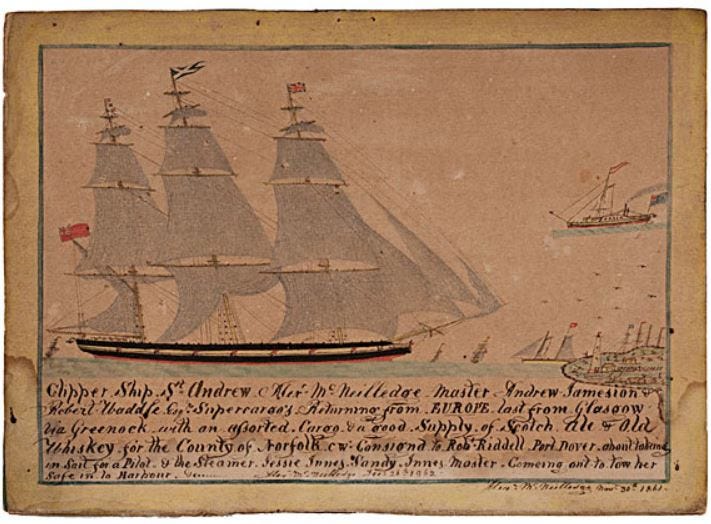 Clipper Ship St Andrew Alexr McNeilledge Master Andrew Jameson &
Robert Waddle Esqrs Supercargo's Returning from EUROPE last from Glasgow
Via Greenock with an assorted Cargo & a good Supply of Scotch Ale & Old
Whiskey for the County of Norfolk C.W. Consignd to Robt Riddell Port Dover about taking
in Sail for a Pilot & the Steamer Jessie Innes Sandy Innes Master Comeing out to tow her
Safe in to Harbour Alexr McNeilledge 1862
Alexr McNeilledge Novr 30th 1861